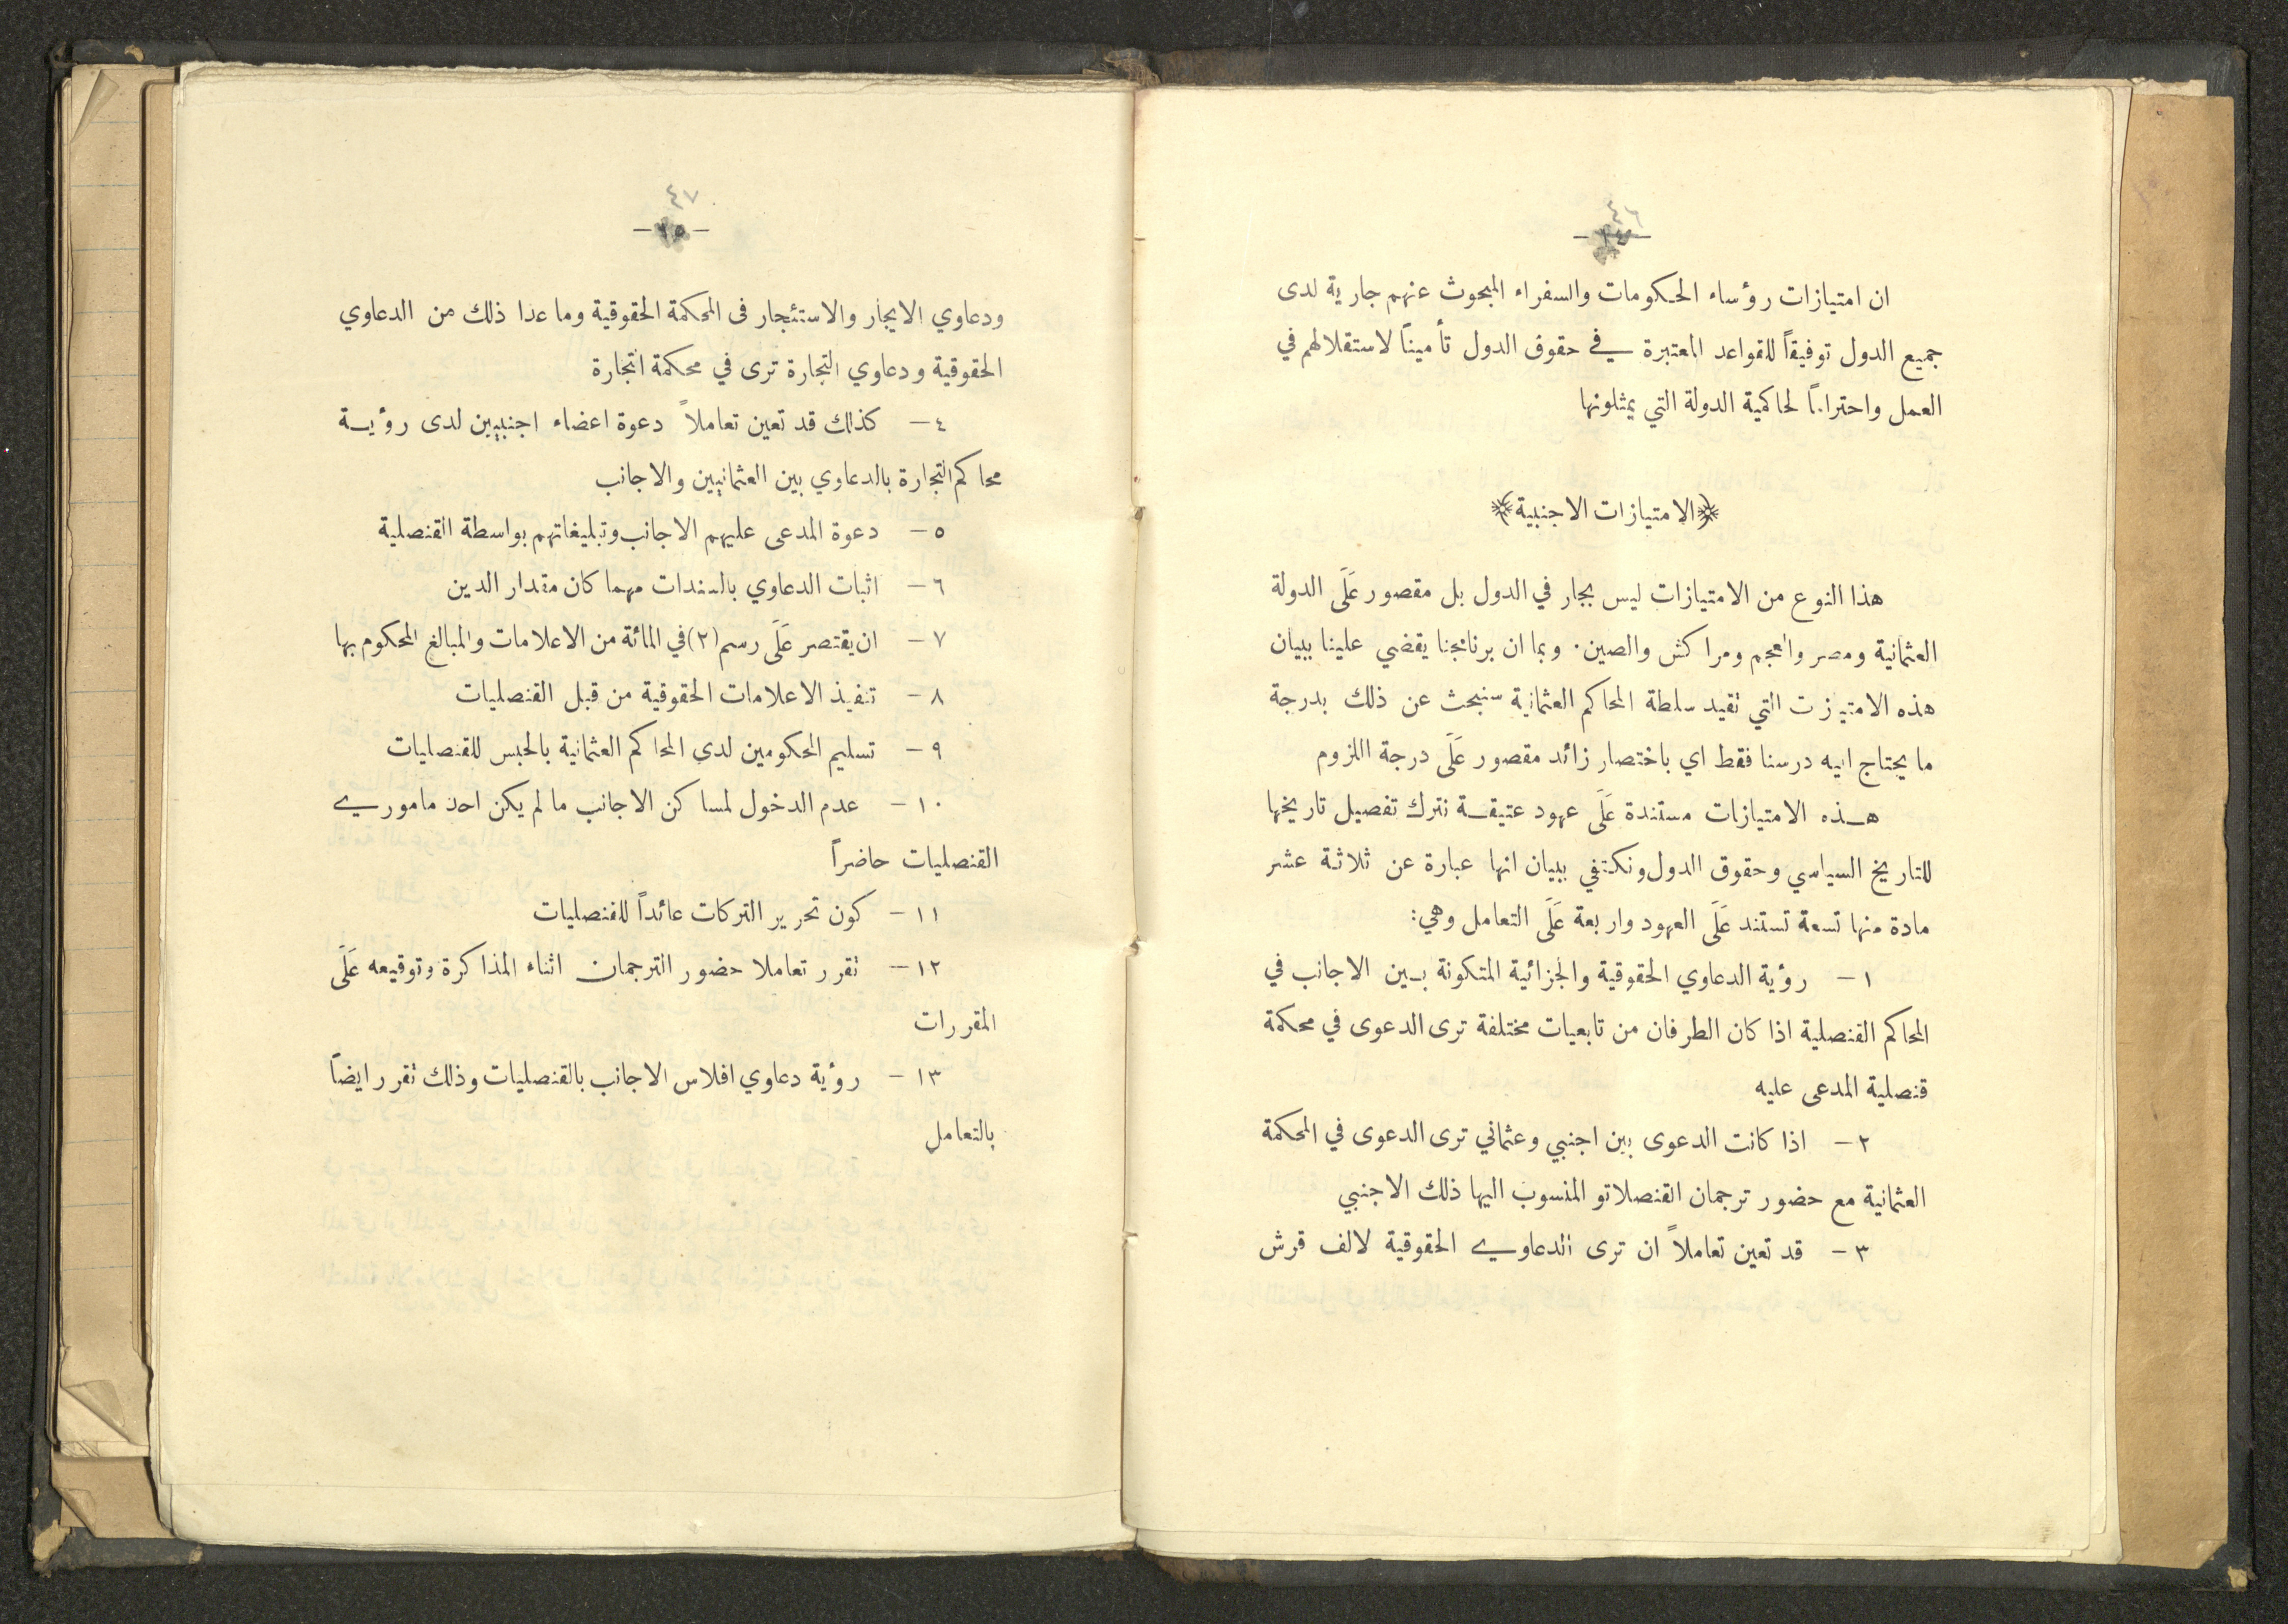 ٤٦
ان امتيازات رؤساء الحكومات والسفراء المبحوث عنهم جارية لدى
جميع الدول توفيقاً للقواعد المعتبرة في حقوق الدول تأميناً لاستقلالهم في
العمل واحتراماً لحاكمية الدولة التي يمثلونها
﴿الامتيازات الاجنبية﴾
هذا النوع من الامتيازات ليس بجار في الدول بل مقصور عَلَى الدولة
العثمانية ومصر والعجم ومراكش والصين. وبما ان برنامجنا يقضي علينا ببيان
هذه الامتيازت التي تقيد سلطة المحاكم العثمانية سنبحث عن ذلك بدرجة
ما يحتاج اليه درسنا فقط اي باختصار زائد مقصور عَلَى درجة اللزوم
هذه الامتيازات مستندة عَلَى عهود عتيقة نترك تفصيل تاريخها
للتاريخ السياسي وحقوق الدول ونكتفي ببيان انها عبارة عن ثلاثة عشر
مادة منها تسعة تستند عَلَى العهود واربعة عَلَى التعامل وهي:
١ – رؤية الدعاوي الحقوقية والجزائية المتكونة بين الاجانب في
المحاكم القنصلية اذا كان الطرفان من تابعيات مختلفة ترى الدعوى في محكمة
قنصلية المدعى عليه
٢ – اذا كانت الدعوى بين اجنبي وعثماني ترى الدعوى في المحكمة
العثمانية مع حضور ترجمان القنصلاتو المنسوب اليها ذلك الاجنبي
٣ – قد تعين تعاملاً ان ترى الدعاوي الحقوقية لالف قرش
٤٧
– ٢٥ –
ودعاوي الايجار والاستئجار فى المحكمة الحقوقية وما عدا ذلك من الدعاوي
الحقوقية ودعاوي التجارة ترى في محكمة التجارة
٤ – كذلك قد تعين تعاملاً دعوة اعضاء اجنبيين لدى رؤية
محاكم التجارة بالدعاوي بين العثمانيين والاجانب
٥ – دعوة المدعى عليهم الاجانب وتبليغاتهم بواسطة القنصلية
٦ – اثبات الدعاوي بالسندات مهما كان مقدار الدين
٧ – ان يقتصر عَلَى رسم (٢) في المائة من الاعلامات والمبالغ المحكوم بها
٨ – تنفيذ الاعلامات الحقوقية من قبل القنصليات
٩ – تسليم المحكومين لدى المحاكم العثمانية بالحبس للقنصليات
١٠ – عدم الدخول لمساكن الاجانب ما لم يكن احد ماموري
القنصليات حاضراً
١١ – كون تحرير التركات عائداً للقنصليات
١٢ – تقرر تعاملا حضور الترجمان اثناء المذاكرة وتوقيعه عَلَى
المقررات
١٣ – رؤية دعاوي افلاس الاجانب بالقنصليات وذلك تقرر ايضاً
بالتعامل